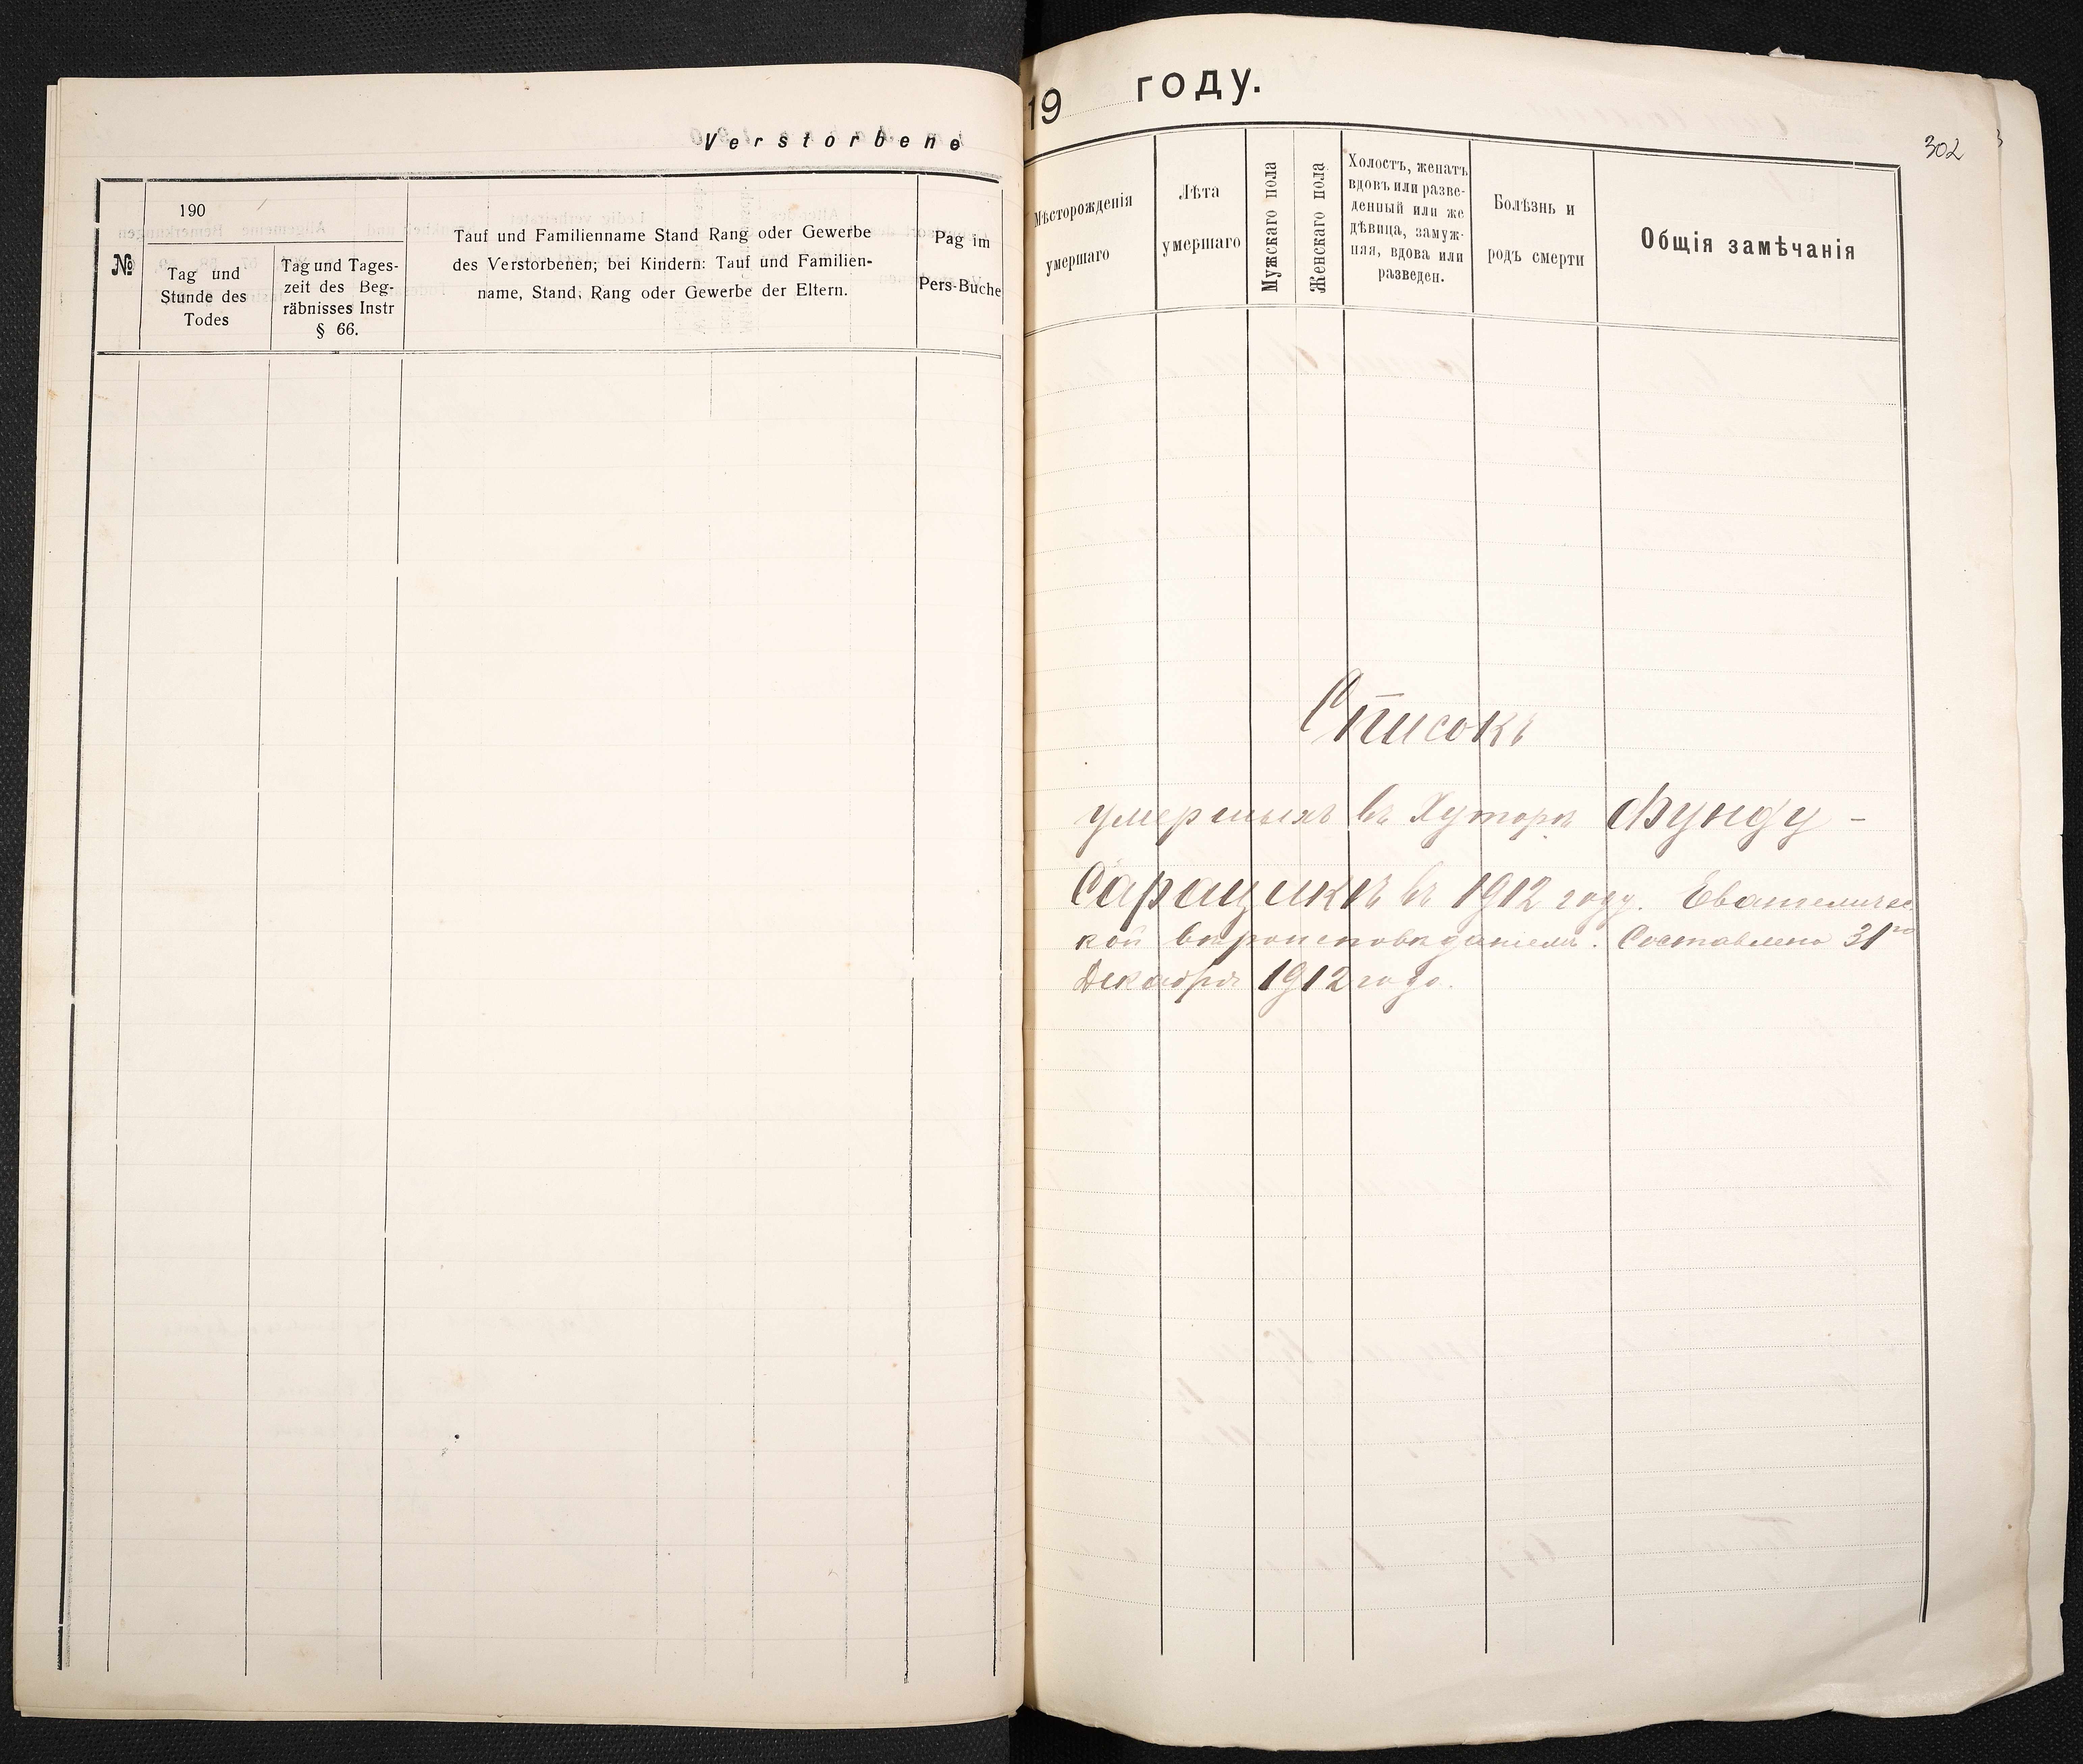 Verstorbene
№
190
Tag und
Stunde des
Todes
Tag und Tages-
zeit des Beg-
räbnisses Instr
§ 66.
Tauf und Familienname Stand Rang oder Gewerbe
des Verstorbenen; bei Kindern: Tauf und Familien-
name, Stand, Rang oder Gewerbe der Eltern.
Pag im
Pers-Buche
19 году.
302
Мѣсторожденія
умершаго
Лѣта
умершаго
Мужскаго пола
Женскаго пола
Холостъ, женатъ
вдовъ или разве-
денный или же
дѣвица, замуж-
няя, вдова или
разведен.
Болѣзнь и
родъ смерти
Общія замѣчанія
Списокъ
умершихъ въ Хуторѣ Фунду -
Сарацикѣ въ 1912 году. Евангеличес
кой вѣроисповѣданіемъ. Составлено 31го
Декабря 1912 года.